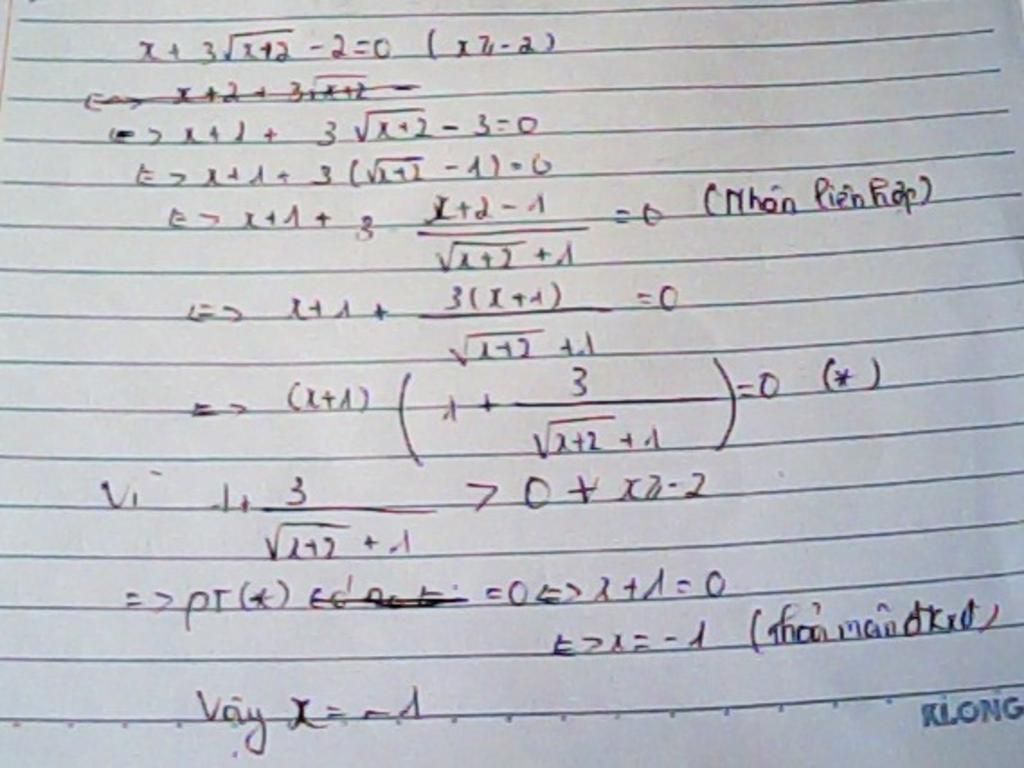 x + 3√(x+2) - 2 = 0 (x ≥ -2)
<=> x + 2 + 3√(x+2) -
<=> x + 1 + 3√(x+2) - 3 = 0
<=> x + 1 + 3(√(x+2) - 1) = 0
<=> x + 1 + 3 (x+2-1)/(√(x+2) + 1) = 0 (Nhân liên hợp)
<=> x + 1 + 3(x+1)/(√(x+2) + 1) = 0
<=> (x+1) (1 + 3/(√(x+2) + 1)) = 0 (*)
Vì 1 + 3/(√(x+2) + 1) > 0 ∀ x ≥ -2
=> PT(*) = 0 <=> x + 1 = 0
<=> x = -1 (thoả mãn đkxđ)
Vậy x = -1
KLONG